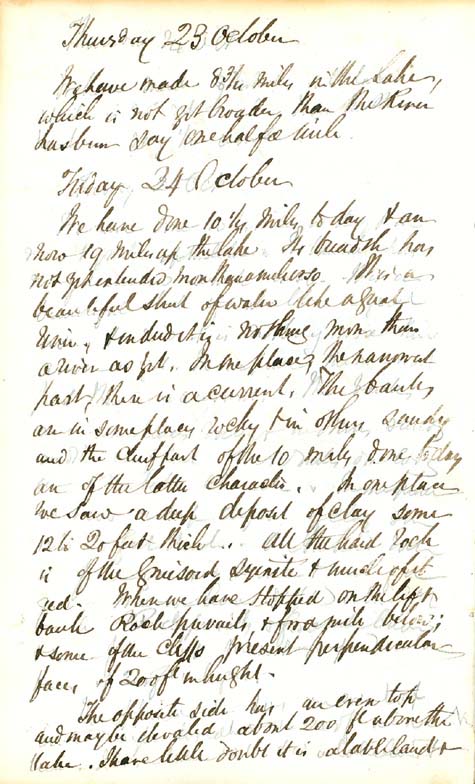 Thursday 23 October
We have made 8 3/4 miles in the Lake,
which is not yet broader than the River
has been say one half a mile.
Friday, 24 October
We have done 10 1/2 miles to day & are
now 19 miles up the lake. Its breadth has
not yet extended more than a mile or so. It is a
beautiful sheet of water like a great
river, & indeed it is nothing more than
a river as yet. In one place, the narrowest
part, there is a current. The banks
are in some places rocky & in others sandy
and the chief part of the 10 miles done to day
are of the latter character. In one place
we saw a deep deposit of clay some
12 to 20 feet thick. All the hard rock
is of the Gneissoid syenite & much of it
red. Where we have stopped on the left
bank Rock prevails & for a mile below;
& some of the cliffs present perpendicular
faces of 20 ft in height.
The opposite side has an even top
and may be elevated about 200 ft above the
lake. I have little doubt it is a table land &